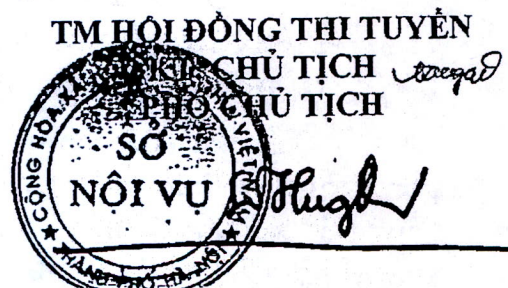 TM HỘI ĐỒNG THI TUYỂN
KT. CHỦ TỊCH
PHÓ CHỦ TỊCH
CỘNG HÒA XÃ VIỆT NAM
SỞ
NỘI VỤ
THÀNH PHỐ HÀ NỘI